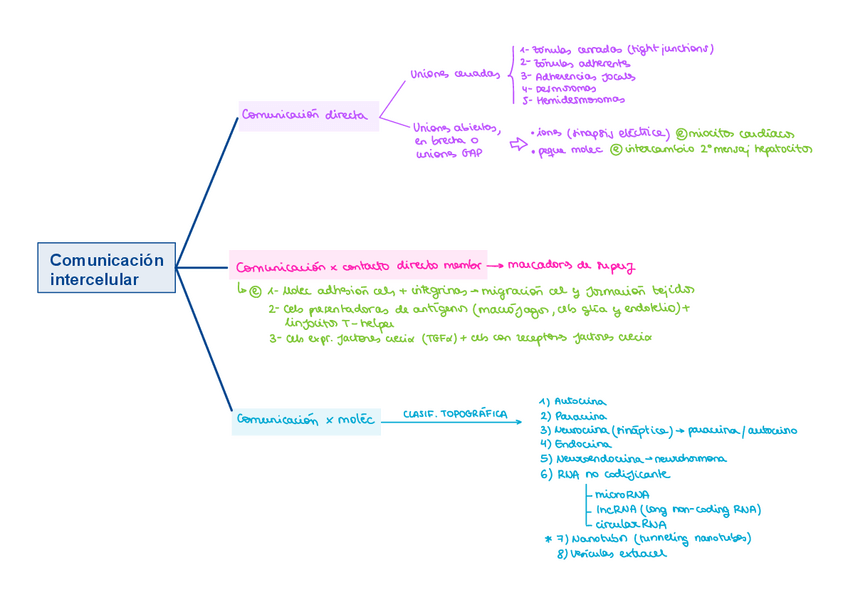 Comunicación intercelular
Comunicación directa
Uniones cerradas
1- Zónulas cerradas (tight junctions)
2- Zónulas adherentes
3- Adherencias focales
4- Desmosomas
5- Hemidesmosomas
Uniones abiertas,
en brecha o
uniones GAP
• iones (sinapsis eléctrica) e miocitos cardíacos
• peque molec e intercambio 2º mensaj hepatocitos
Comunicación x contacto directo membr → marcadores de superf
e 1- Molec adhesión cels + integrinas → migración cel y formación tejidos
2- Cels presentadoras de antígenos (macrófagos, cels glía y endotelio) +
linfocitos T-helper
3- Cels expr. factores crecim (TGFα) + cels con receptores factores crecim
Comunicación x moléc
CLASIF. TOPOGRÁFICA
1) Autocrina
2) Paracrina
3) Neurocrina (sináptica) → paracrina / autocrina
4) Endocrina
5) Neuroendocrina → neurohormona
6) RNA no codificante
microRNA
lncRNA (long non-coding RNA)
circular RNA
* 7) Nanotubos (tunneling nanotubes)
8) Vesículas extracel